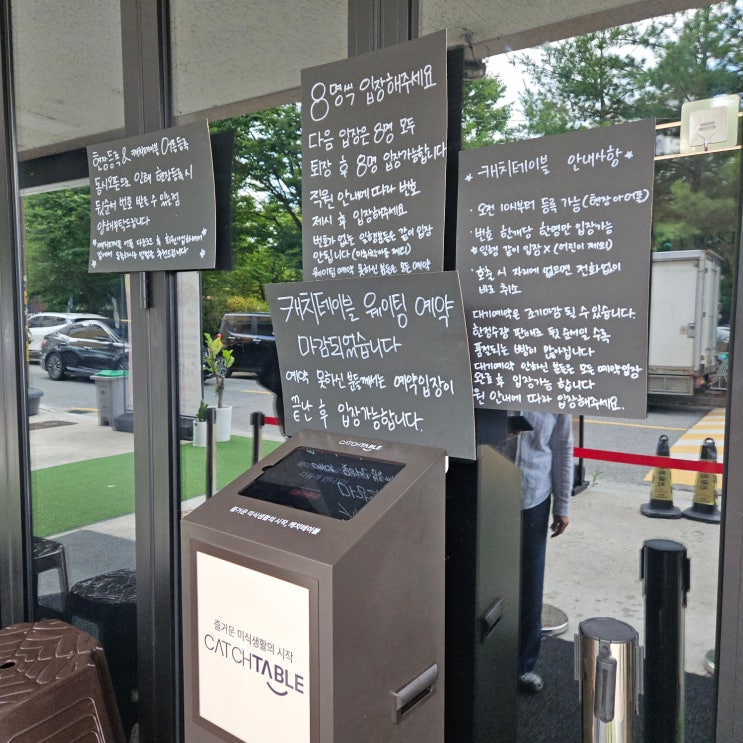 현장등록 & 캐치테이블 어플등록
동시오픈으로 인해 현장등록시
뒷순서 번호 받을 수 있는점
양해부탁드립니다
8명씩 입장해주세요
다음 입장은 8명 모두
퇴장 후 8명 입장가능합니다
직원 안내에 따라 번호
제시 후 입장해주세요
번호가 없는 일행분들은 같이 입장
안됩니다
웨이팅 예약 못하신 분들은 모든 예약
캐치테이블 웨이팅 예약
마감되었습니다
예약 못하신 분들께서는 예약입장이
끝난 후 입장가능합니다.
* 캐치테이블 안내사항 *
· 오전 10시부터 등록 가능 (현장 and 어플)
· 번호 한개당 한명만 입장가능
* 일행 같이 입장 X (어린이 제외)
· 호출 시 자리에 없으면 전화없이
바로 취소
대기예약은 조기마감 될 수 있습니다.
한정수량 판매로 뒷 순서일 수록
품절되는 빵이 많아집니다
대기예약 안하신 분들은 모든 예약입장
완료 후 입장가능 합니다
직원 안내에 따라 입장해주세요.
CATCHTABLE
즐거운 미식생활의 시작, 캐치테이블
즐거운 미식생활의 시작
CATCHTABLE